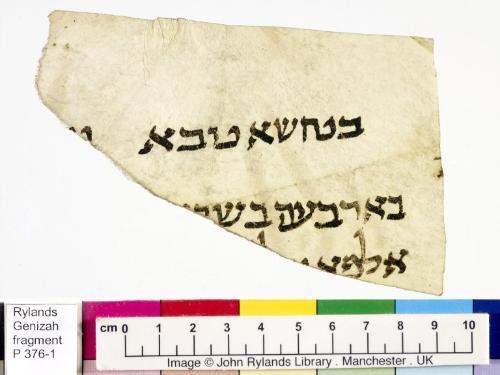 בנחשא טבא
בארבעה בשבא
Rylands
Genizah
fragment
P 376-1
cm 0 1 2 3 4 5 6 7 8 9 10
Image © John Rylands Library . Manchester . UK